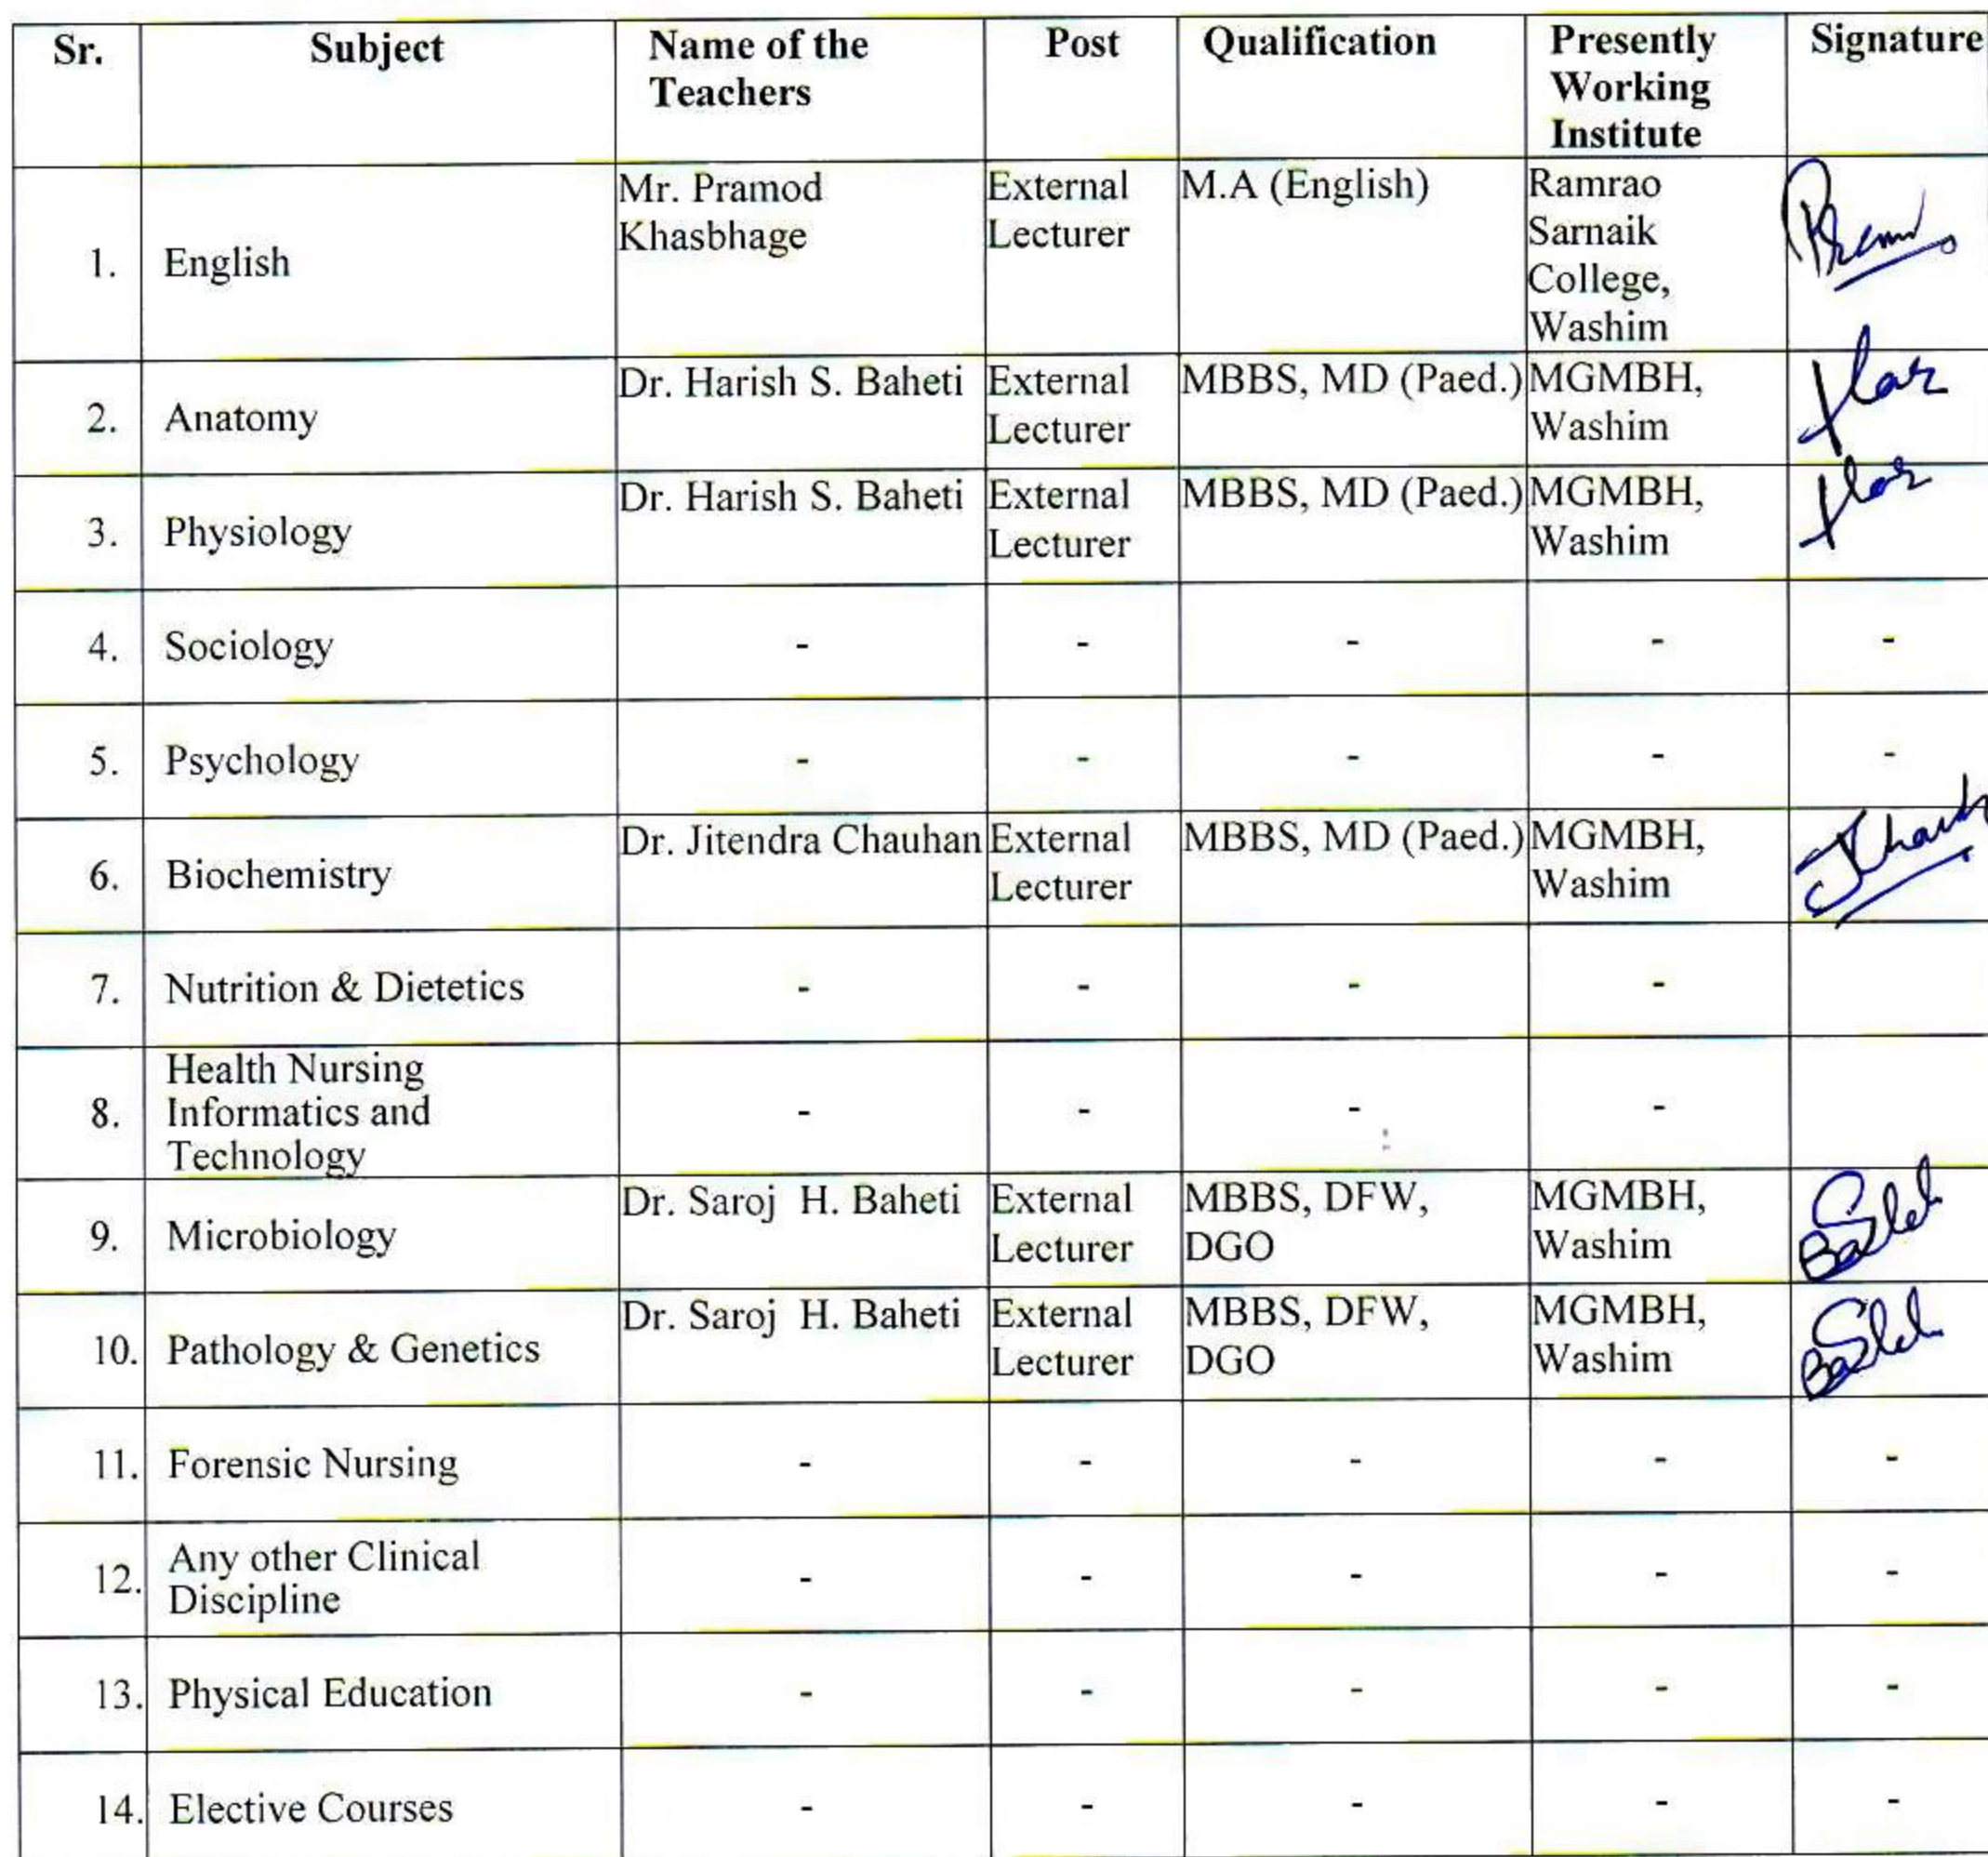 Sr. Subject Name of the Teachers Post Qualification Presently Working Institute Signature
1. English Mr. Pramod Khasbhage External Lecturer M.A (English) Ramrao Sarnaik College, Washim
2. Anatomy Dr. Harish S. Baheti External Lecturer MBBS, MD (Paed.) MGMBH, Washim
3. Physiology Dr. Harish S. Baheti External Lecturer MBBS, MD (Paed.) MGMBH, Washim
4. Sociology - - - - -
5. Psychology - - - - -
6. Biochemistry Dr. Jitendra Chauhan External Lecturer MBBS, MD (Paed.) MGMBH, Washim
7. Nutrition & Dietetics - - - -
8. Health Nursing Informatics and Technology - - - -
9. Microbiology Dr. Saroj H. Baheti External Lecturer MBBS, DFW, DGO MGMBH, Washim
10. Pathology & Genetics Dr. Saroj H. Baheti External Lecturer MBBS, DFW, DGO MGMBH, Washim
11. Forensic Nursing - - - - -
12. Any other Clinical Discipline - - - - -
13. Physical Education - - - - -
14. Elective Courses - - - - -